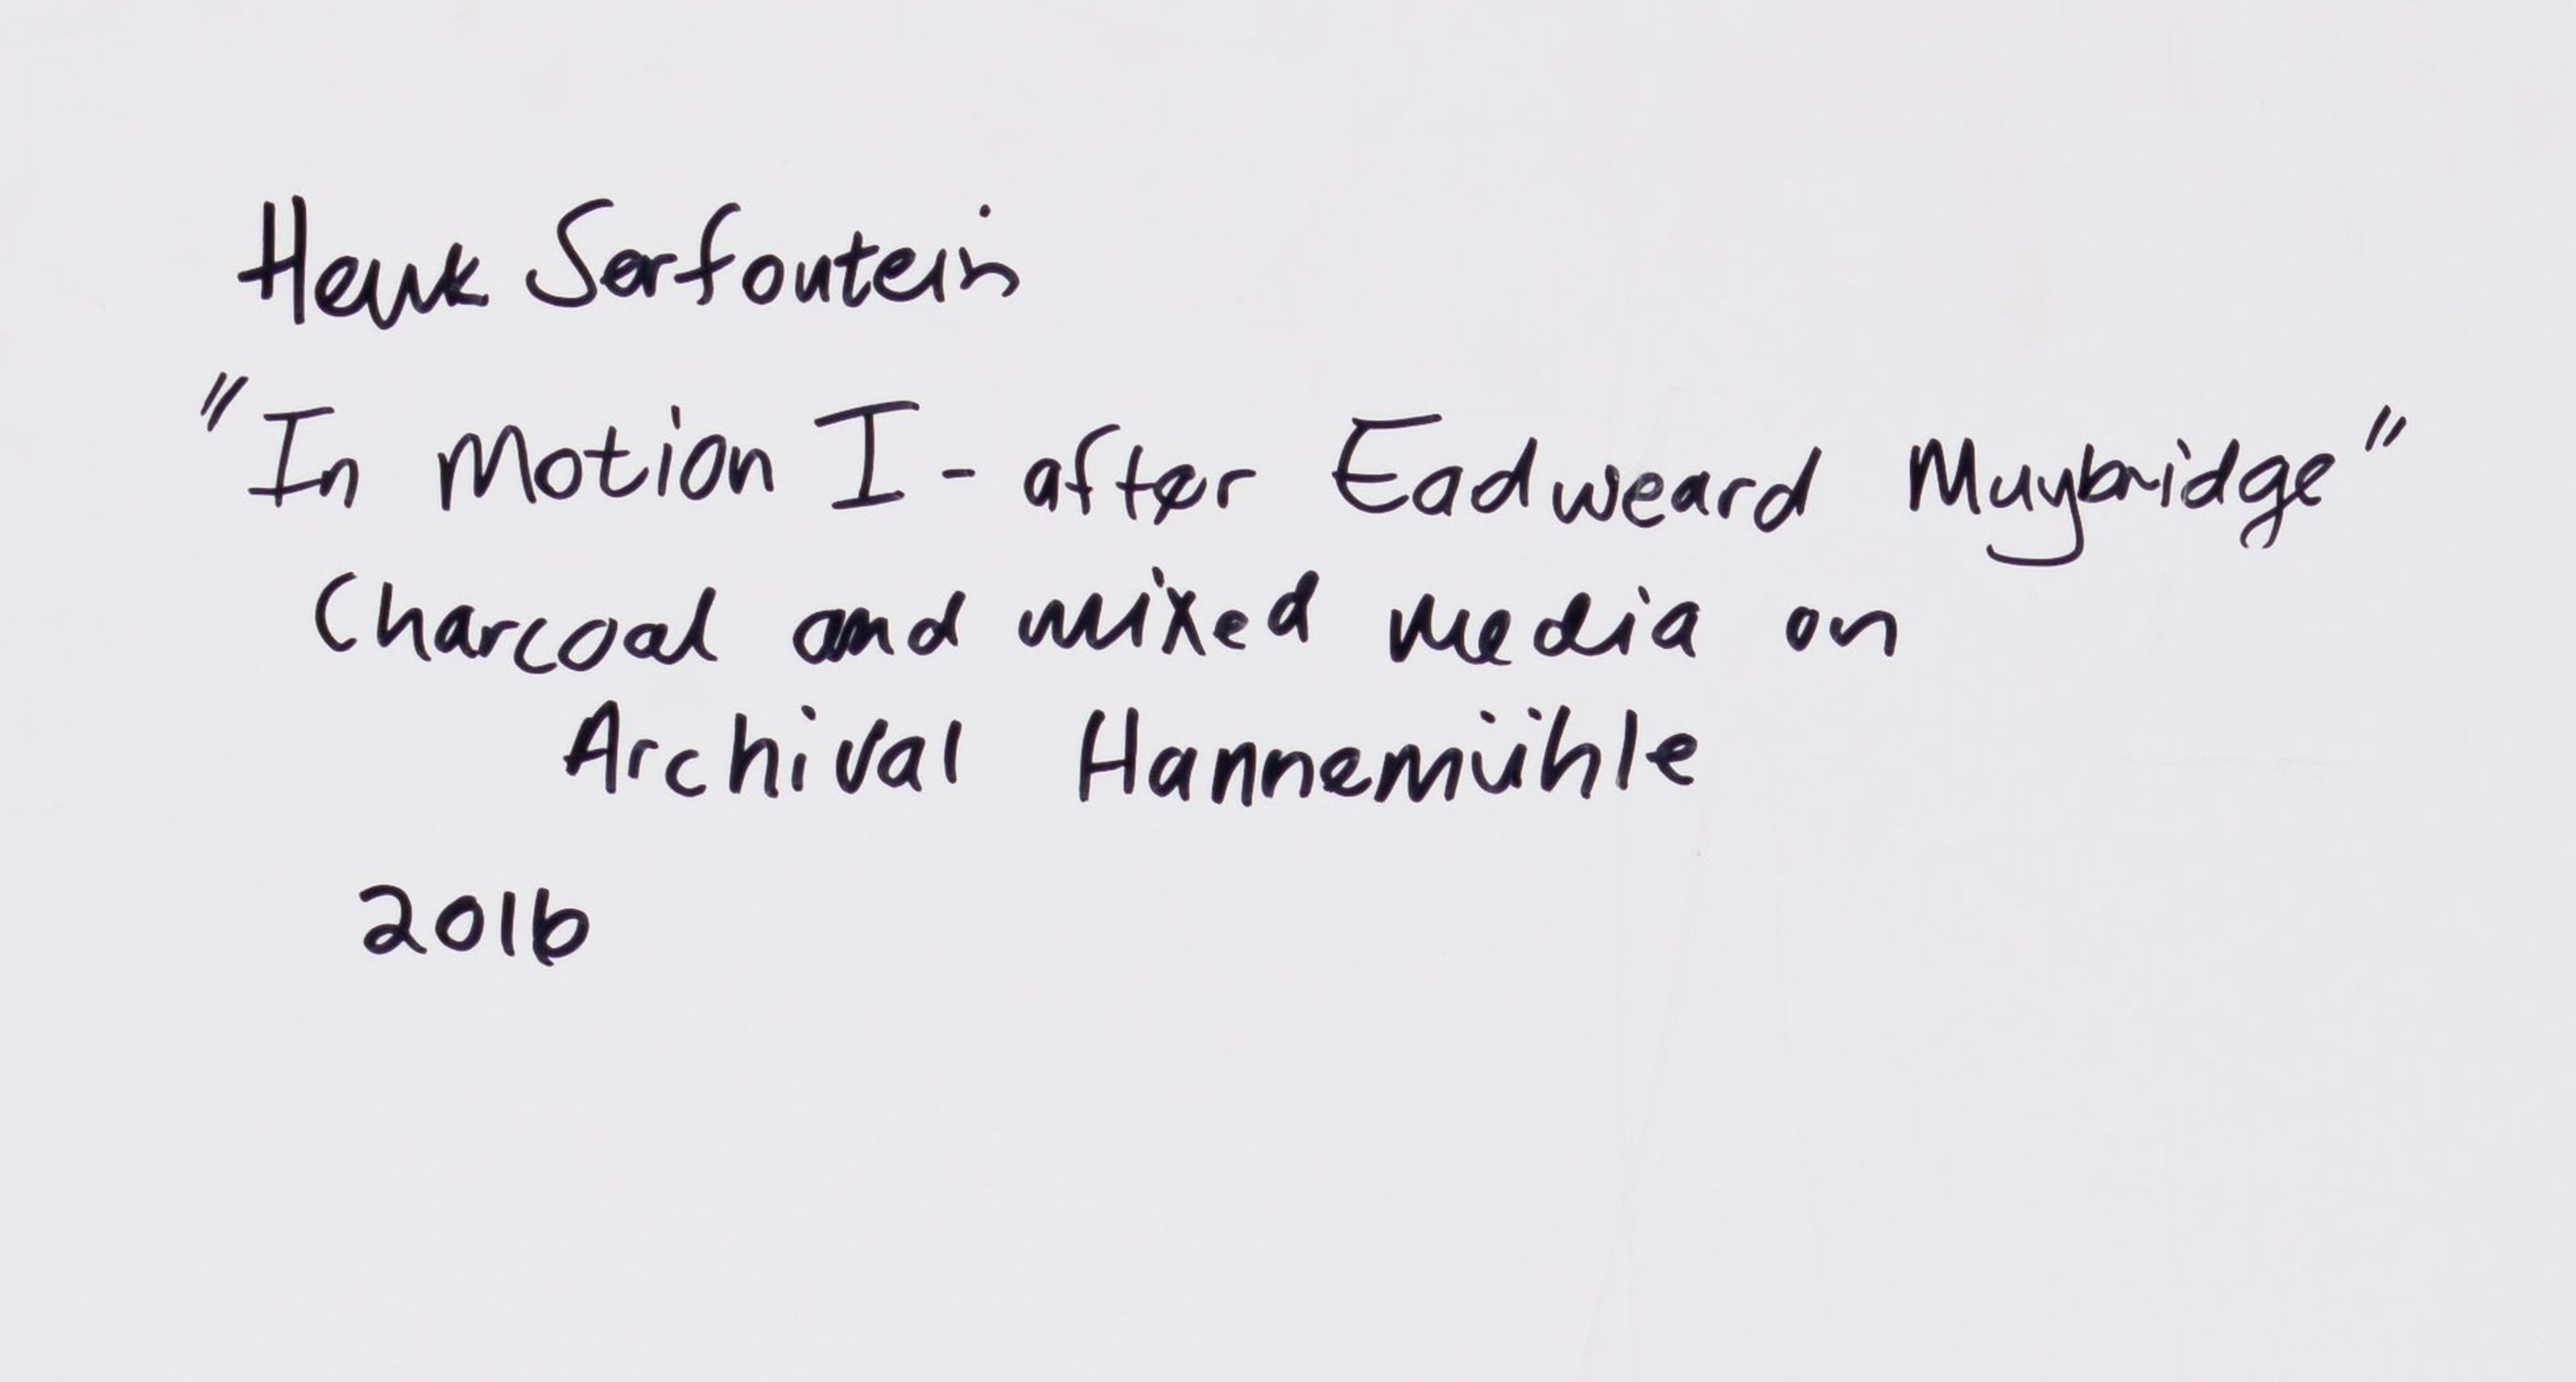 Henk Serfontein
"In Motion I - after Eadweard Muybridge"
Charcoal and mixed media on
Archival Hannemühle
2016